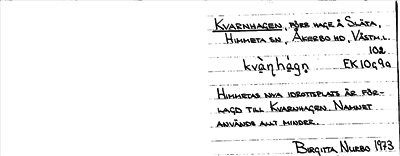 KVARNHAGEN, FÖRE HAGE Å SLÄTA,
HIMMETA SN, ÅKERBO HD, VÄSTM.L.
102
kvà̱ṇhágṇ EK10g9a
HIMMETAS NYA IDROTTSPLATS ÄR FÖR-
LAGD TILL KVARNHAGEN. NAMNET
ANVÄNDS ALLT MINDRE.
BIRGITTA NURBO 1973